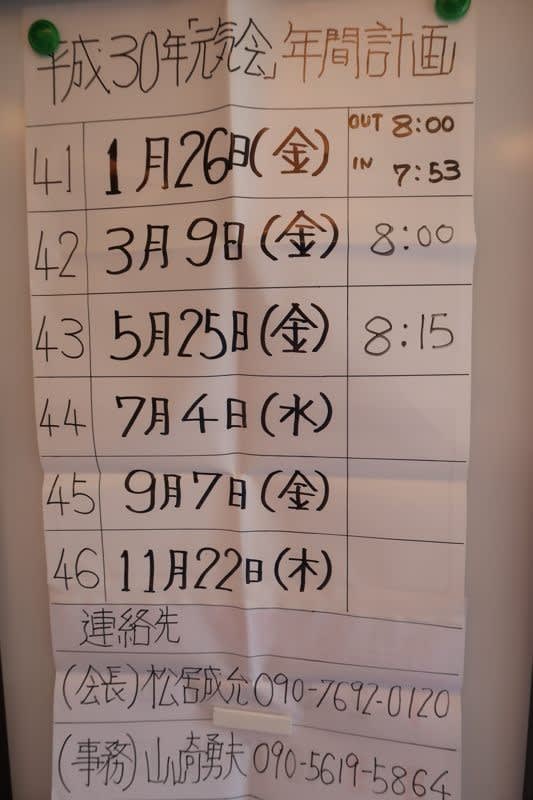 平成30年「元気会」年間計画
41 1月26日(金) OUT 8:00
IN 7:53
42 3月9日(金) 8:00
43 5月25日(金) 8:15
44 7月4日(水)
45 9月7日(金)
46 11月22日(木)
連絡先
(会長) 松宮成允 090-7692-0120
(事務) 山崎勇夫 090-5619-5864